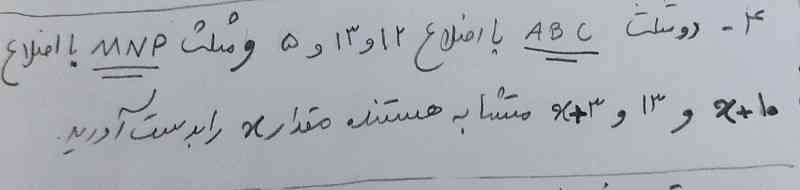 ۴- دو مثلث ABC با اضلاع ۱۲ و ۱۳ و ۵ و مثلث MNP با اضلاع
x+۱۰ و ۱۳ و x+۳ متشابه هستند مقدار x را بدست آورید.